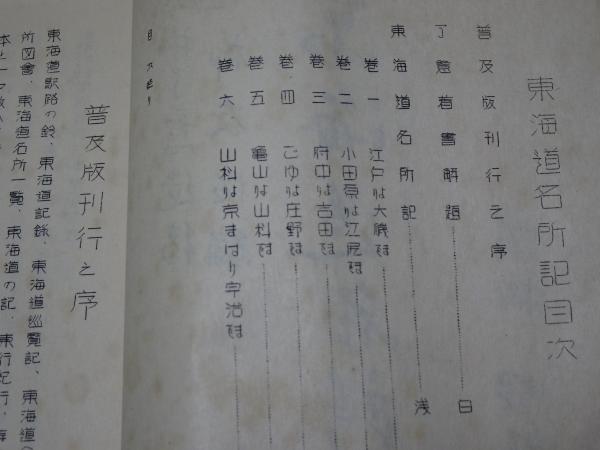 東海道名所記目次
普及版刊行之序
了意著書解題
東海道名所記 浅
巻一 江戸より大磯まで
巻二 小田原より江尻まで
巻三 府中より吉田まで
巻四 ごゆより庄野まで
巻五 亀山より山科まで
巻六 山科より京まはり宇治まで
目次終り
普及版刊行之序
東海道駅路の鈴、東海道記録、東海道巡覧記、東海道
所図會、東海道名所一覧、東海道の記、東行紀行、